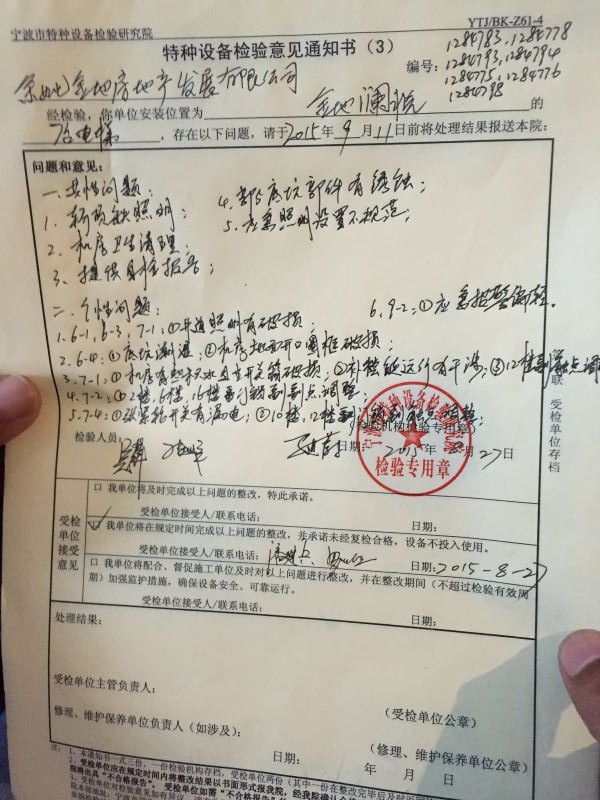 宁波市特种设备检验研究院
YTJ/BK-Z61-4
特种设备检验意见通知书（3）
编号：
1284783, 1284778
1284793, 1284794
1284775, 1284776
1284798
余姚金地房地产发展有限公司
经检验，你单位安装位置为 金地澜悦 的
台电梯，存在以下问题，请于2015年9月11日前将处理结果报送本院：
问题和意见：
一、共性问题：
1. 轿顶缺照明；
2. 机房卫生清理；
3. 提供自检报告；
4. 部分底坑部件有锈蚀；
5. 应急照明设置不规范；
二、个性问题：
1. 6-1, 6-3, 7-1：①井道照明有破损；
2. 6-4：①底坑潮湿；②机房地面开口圈框破损；
3. 7-1：①机房有 开关箱破损；②补偿链运行有干涉；③12楼
4. 7-2：①2楼, 6楼, 16楼 调整；
5. 7-4：① 开关有漏电；②10楼, 12楼
6. 9-2：①应急报警
检验人员：
检验机构检验专用章
日期：2015年8月27日
宁波市特种设备检验研究院
检验专用章
第 联 受检单位存档
受检单位接受意见
口 我单位将及时完成以上问题的整改，特此承诺。
受检单位接受人/联系电话：
日期：
我单位将在规定时间完成以上问题的整改，并承诺未经复检合格，设备不投入使用。
受检单位接受人/联系电话：
日期：2015-8-27
口 我单位将配合、督促施工单位及时对以上问题进行整改，并在整改期间（不超过检验有效周
期）加强监护措施，确保设备安全、可靠运行。
受检单位接受人/联系电话：
日期：
处理结果：
受检单位主管负责人：
（受检单位公章）
修理、维护保养单位负责人（如涉及）：
（修理、维护保养单位公章）
日期： 年 月 日
注：1、本通知书一式三份，一份检验机构存档，受检单位两份（其中一份在整改完毕后及时
2、受检单位应在规定时间内将整改结果以书面形式报我院，
院将出具“不合格报告”。受检单位如需“不合格报告”